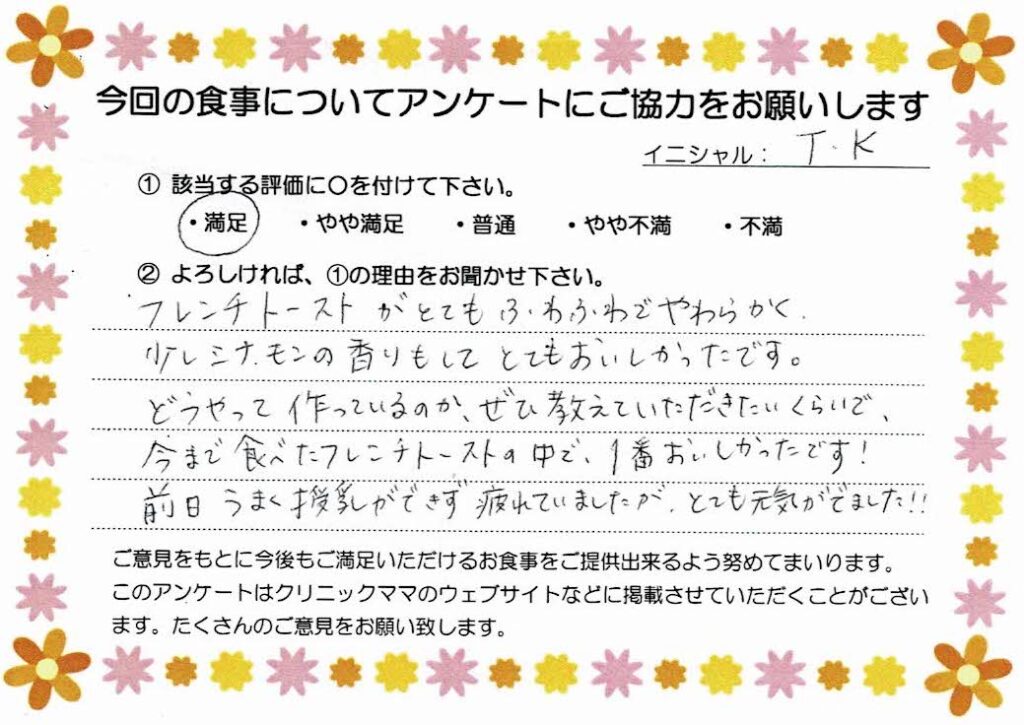 今回の食事についてアンケートにご協力をお願いします
イニシャル： T.K
① 該当する評価に〇を付けて下さい。
・満足 ・やや満足 ・普通 ・やや不満 ・不満
② よろしければ、①の理由をお聞かせ下さい。
フレンチトーストがとてもふわふわでやわらかく、
少しシナモンの香りもしてとてもおいしかったです。
どうやって作っているのか、ぜひ教えていただきたいくらいで、
今まで食べたフレンチトーストの中で、1番おいしかったです!
前日うまく授乳ができず疲れていましたが、とても元気がでました!!
ご意見をもとに今後もご満足いただけるお食事をご提供出来るよう努めてまいります。
このアンケートはクリニックママのウェブサイトなどに掲載させていただくことがござい
ます。たくさんのご意見をお願い致します。